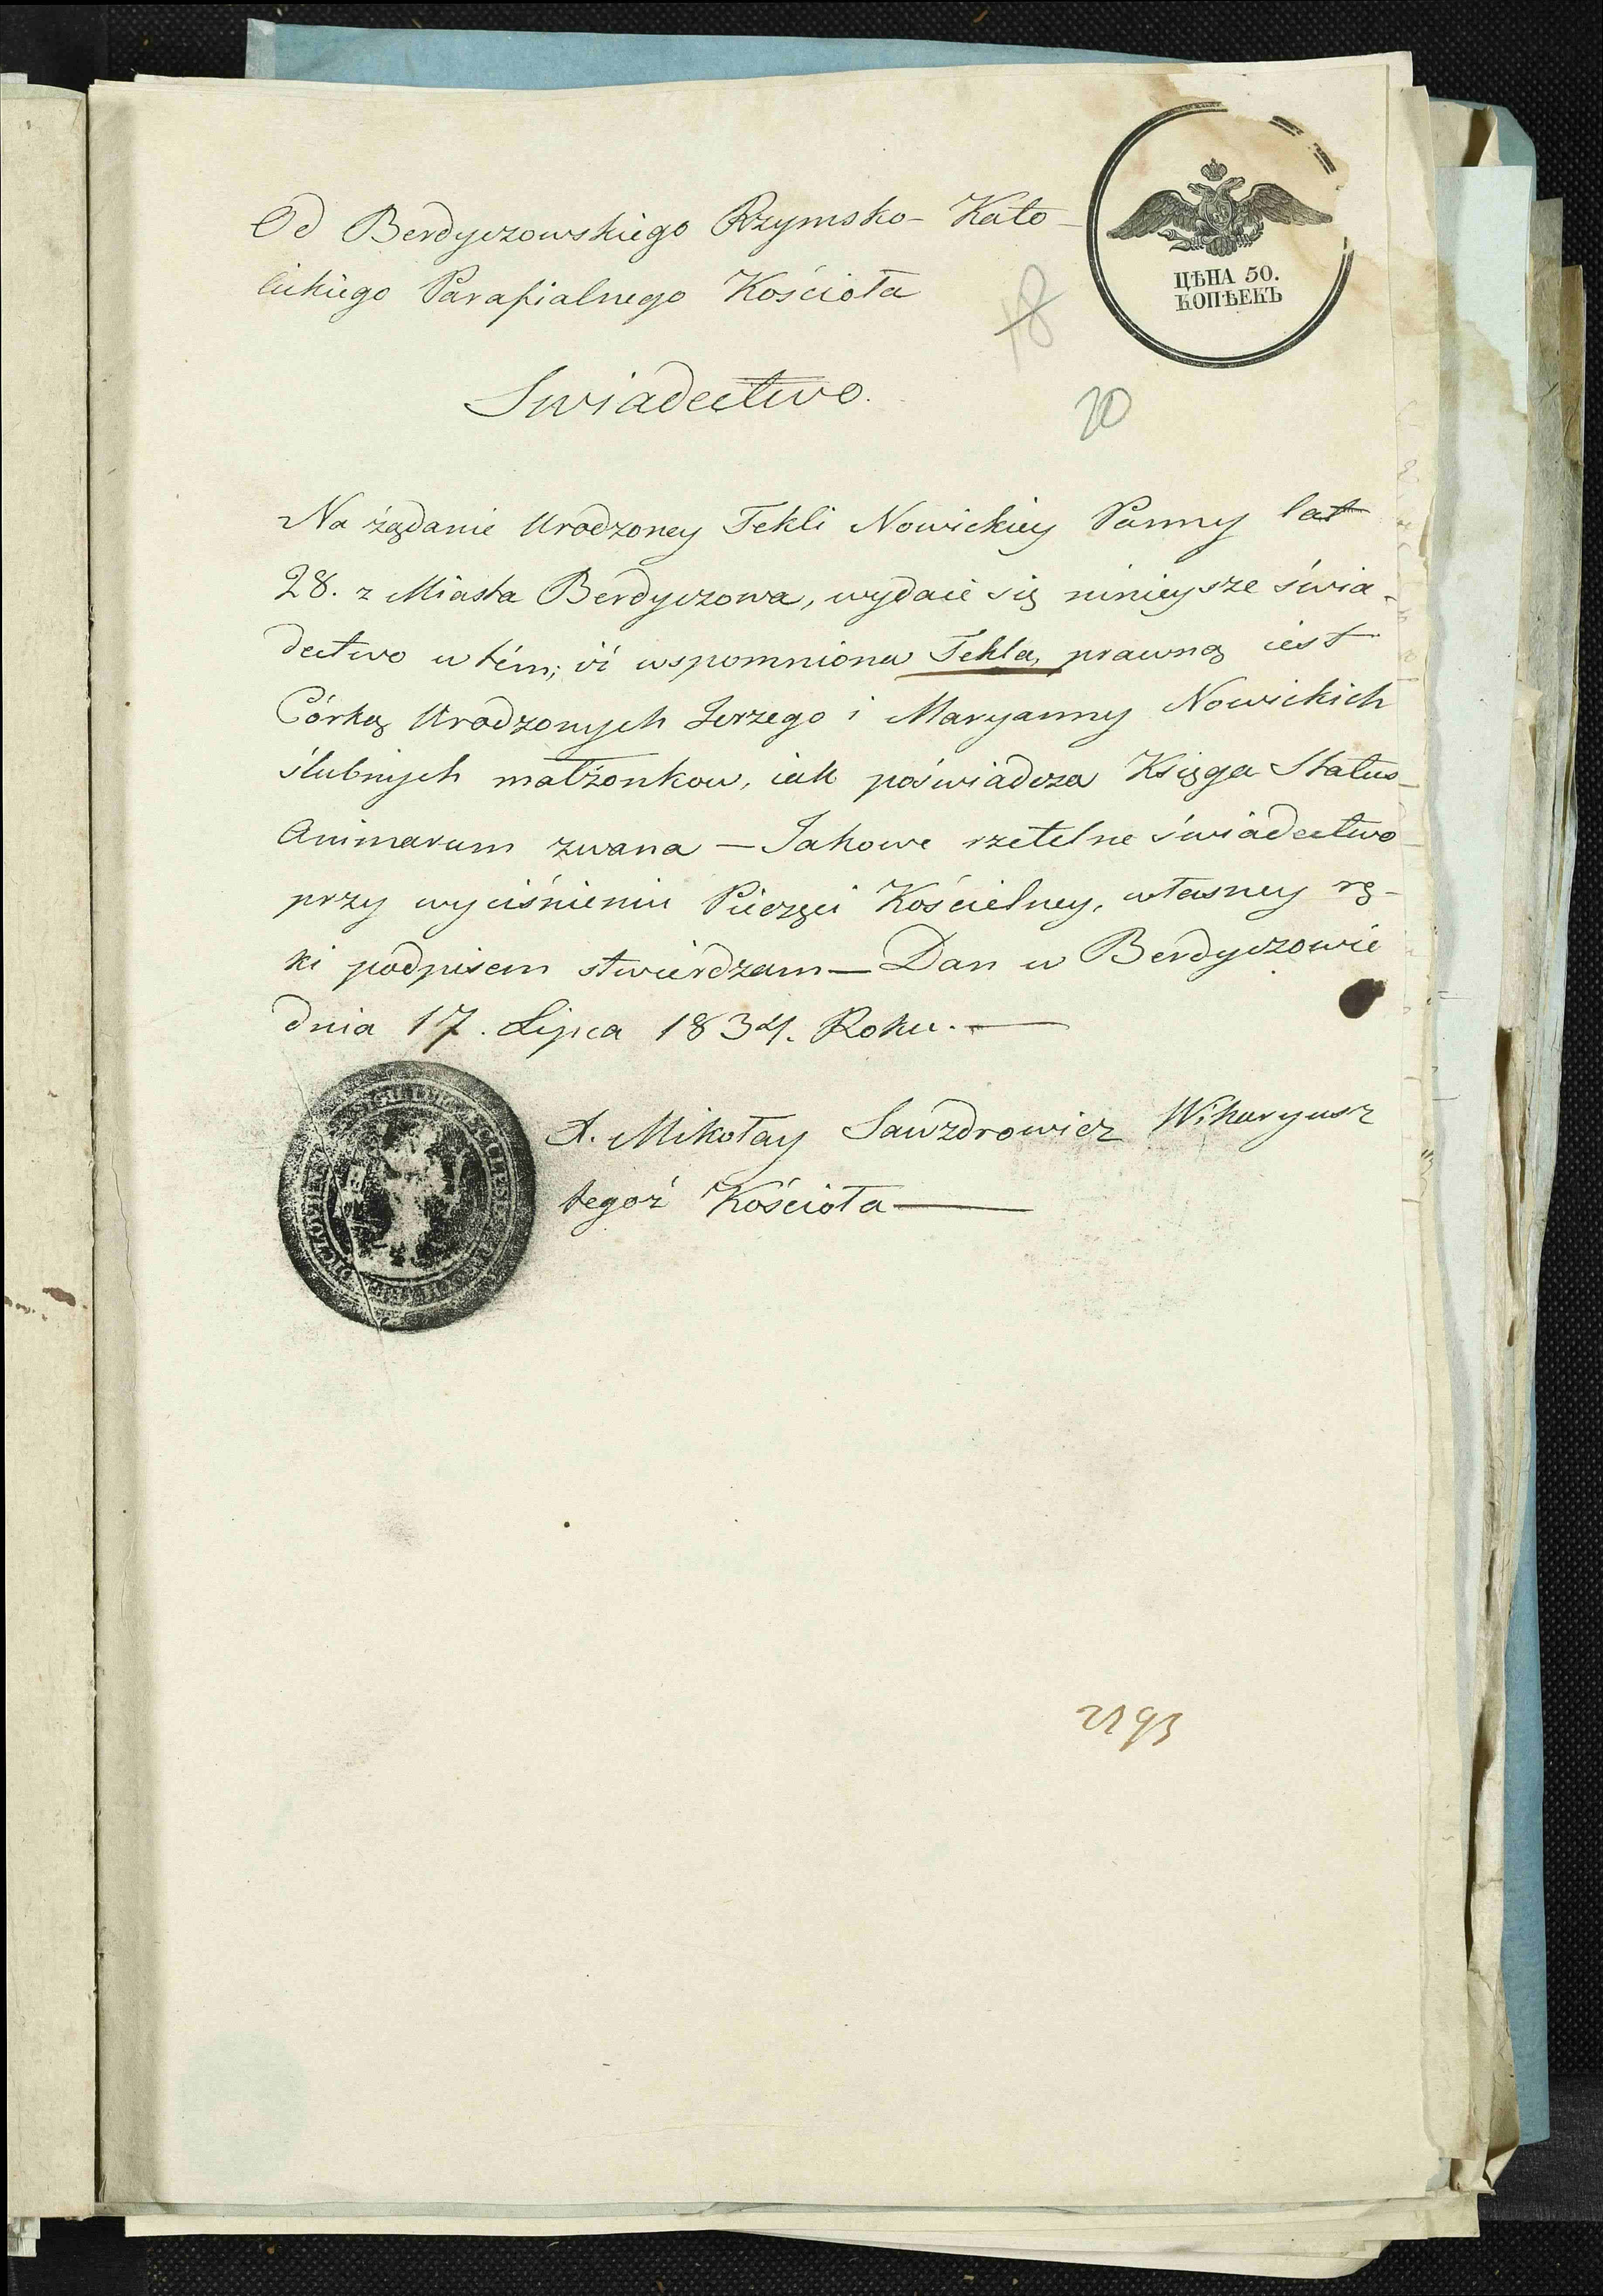 Od Berdyczowskiego Rzymsko-Kato-
lickiego Parafialnego Kościoła
ЦѢНА 50.
КОПѢЕКЪ
18
20
Swiadectwo.
Na żądanie Urodzoney Tekli Nowickiey Panny lat
28. z Miasta Berdyczowa, wydaie się ninieysze świa-
dectwo w tém; iż wspomniona Tekla, prawną iest
Córką Urodzonych Jerzego i Maryanny Nowickich
ślubnych małżonkow, iak poświadcza Księga Status
Animarum zwana — Jakowe rzetelne świadectwo
przy wyciśnieniu Pieczęci Kościelney, własney rę-
ki podpisem stwierdzam — Dan w Berdyczowie
dnia 17. Lipca 1834. Roku. —
X. Mikołay Sawzdrowicz Wikaryusz
tegoż Kościoła —